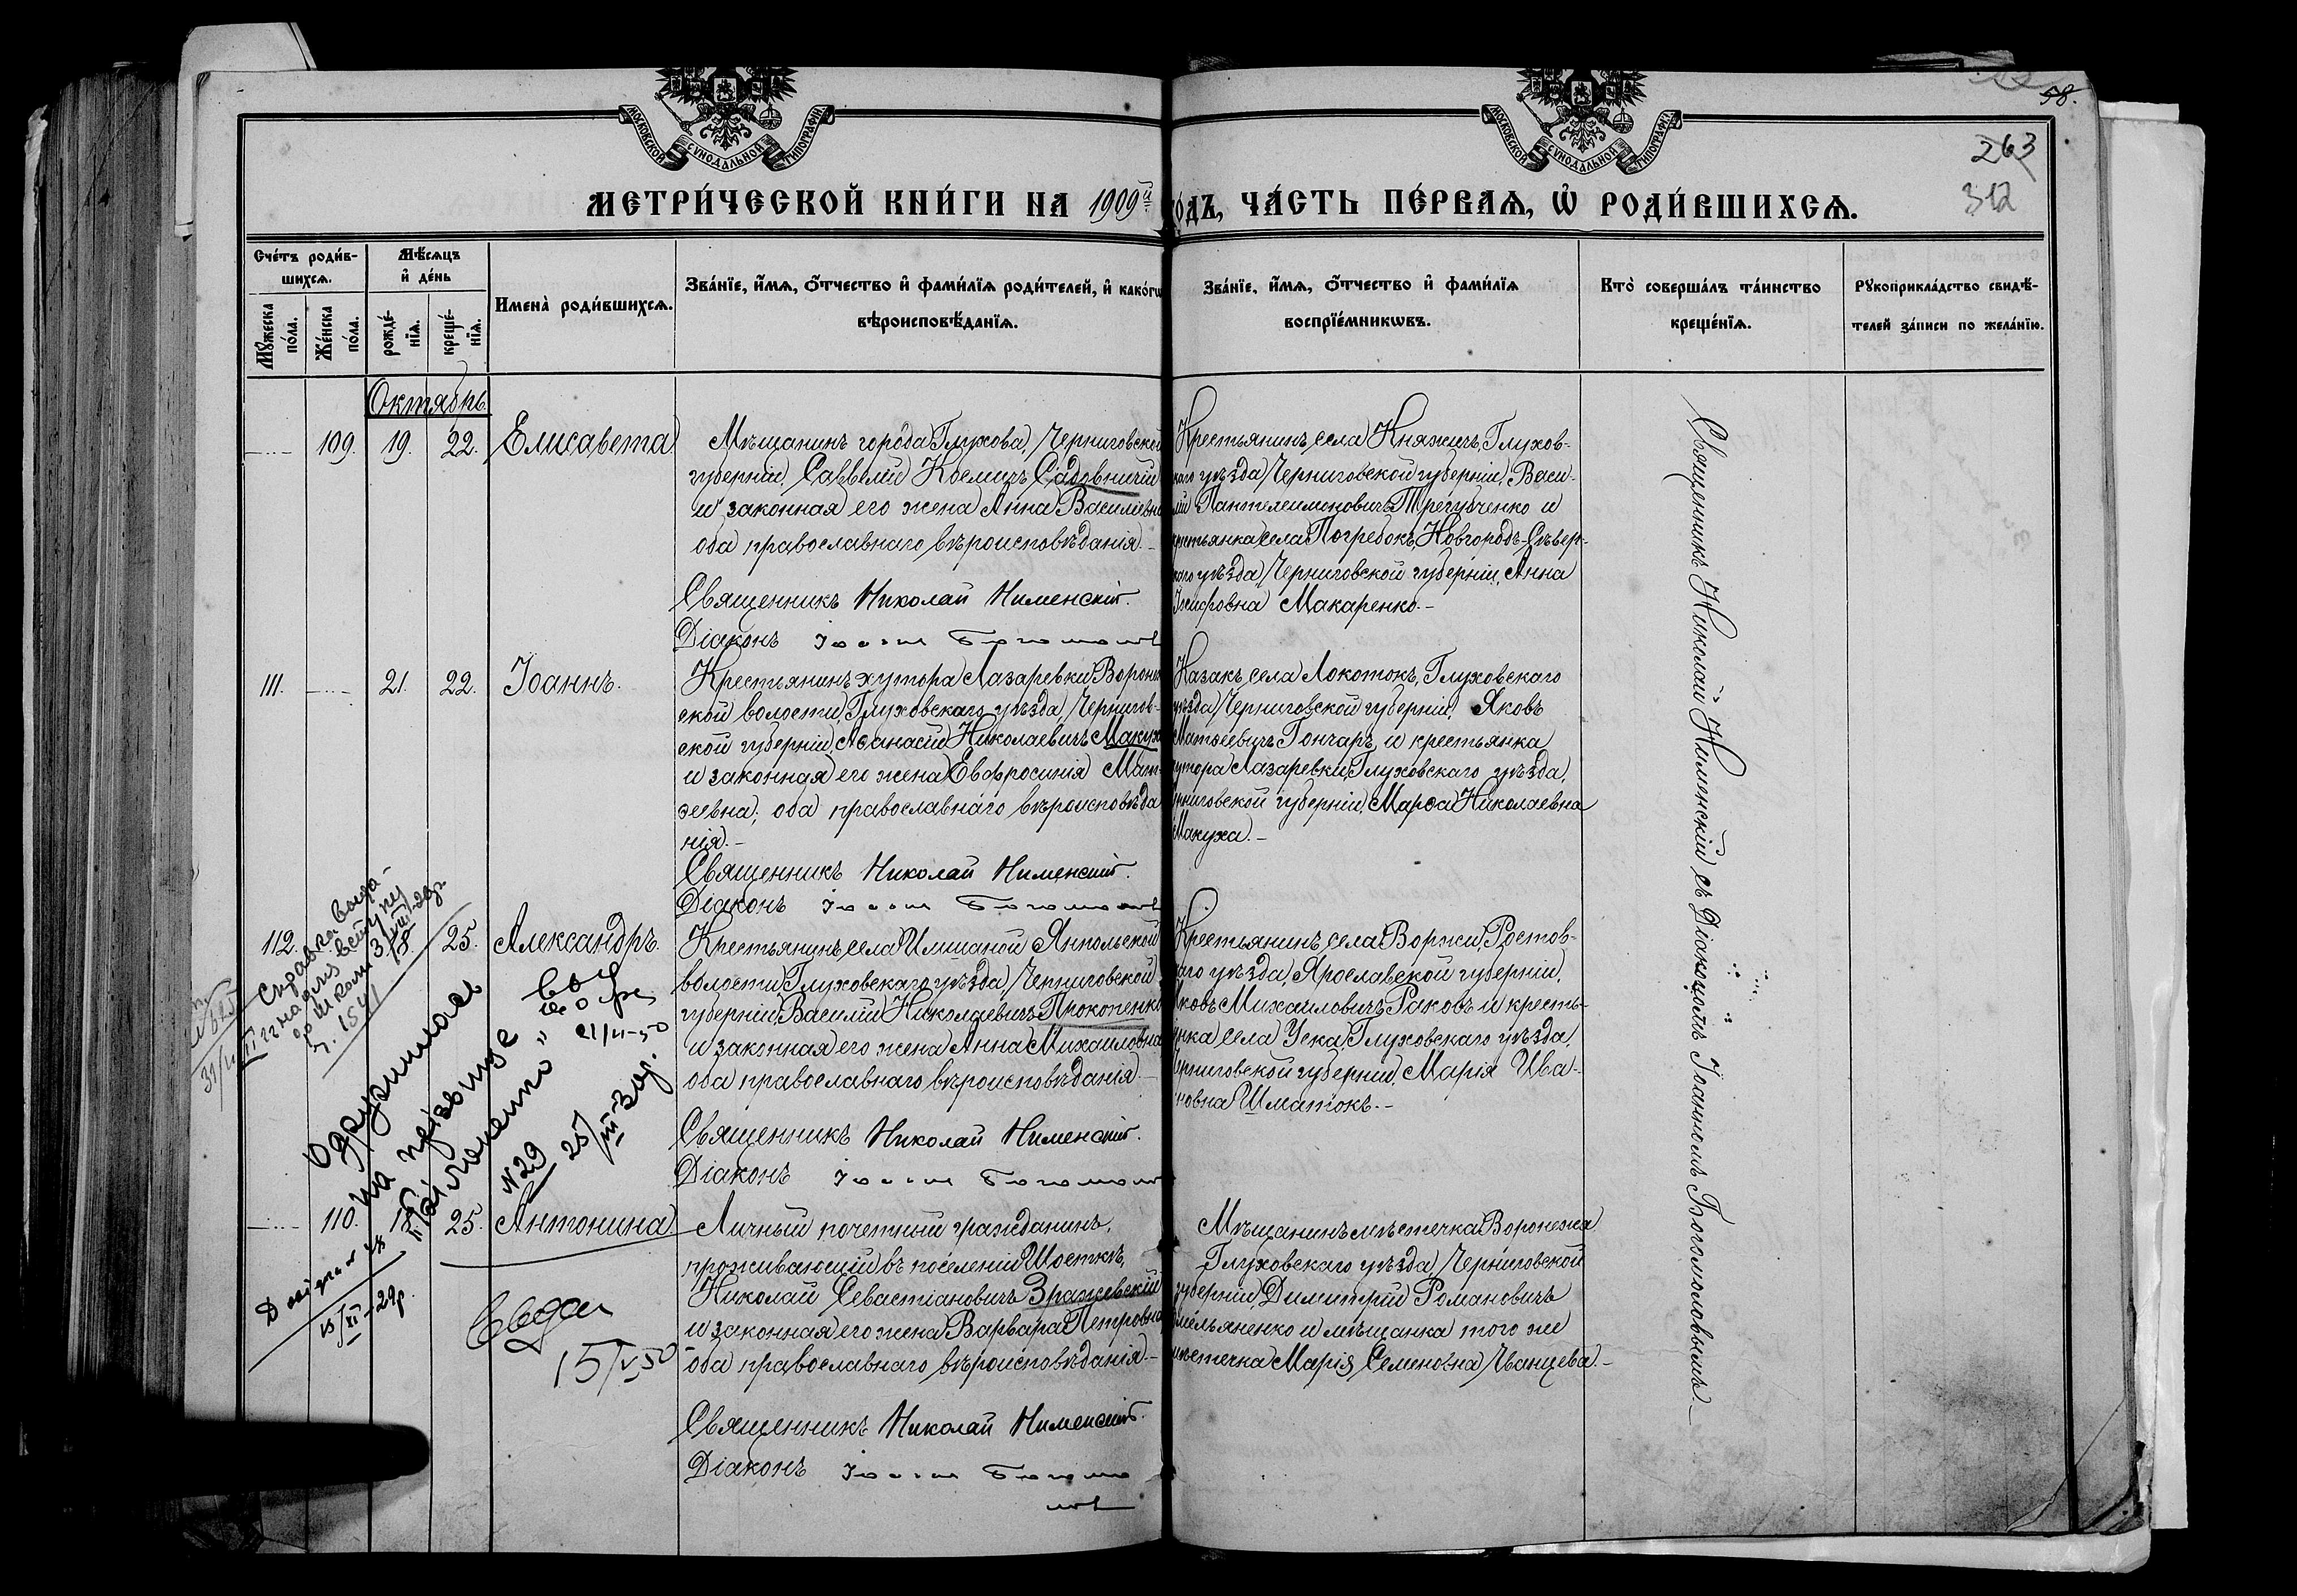 58.
263
312
МОСКОВСКОЙ СѴНОДАЛЬНОЙ ТИПОГРАФІИ
МОСКОВСКОЙ СѴНОДАЛЬНОЙ ТИПОГРАФІИ
МЕТРИ́ЧЕСКОЙ КНИ́ГИ НА 1909й
ГО́ДЪ, ЧА́СТЬ ПЕ́РВАѦ, Ѡ҆ РОДИ́ВШИХСѦ.
Сче́тъ роди́в-
шихсѧ.
Мꙋ́жеска по́ла.
Же́нска по́ла.
Мѣ́сѧцъ
и҆ де́нь
рожде́-
нїѧ.
креще́-
нїѧ.
Имена̀ роди́вшихсѧ.
Зва́нїе, и҆́мѧ, ѻ҆́тчество и҆ фами́лїѧ роди́телей, и҆ како́гѡ
вѣроисповѣ́данїѧ.
Зва́нїе, и҆́мѧ, ѻ҆́тчество и҆ фами́лїѧ
воспрїе́мникѡвъ.
Кто̀ соверша́лъ та́инство
креще́нїѧ.
Рꙋкоприкла́дство свидѣ́-
телей за́писи по жела́нїю.
Октябрь
109. 19. 22. Елисавета
Мѣщанинъ города Глухова, Черниговской
губерніи, Савелій Космичъ Садовничій
и законная его жена Анна Василіевна
оба православнаго вѣроисповѣданія.–
Священникъ Николай Нименскій.
Діаконъ Іоаннъ Богомоловъ
Крестьянинъ села Княжичъ, Глухов-
скаго уѣзда, Черниговской губерніи, Васи-
лій Пантелеимоновичъ Трегубченко и
крестьянка села Погребокъ, Новгородъ-Сѣвер-
скаго уѣзда, Черниговской губерніи, Анна
Макаренко.–
111. 21. 22. Іоаннъ.
Крестьянинъ хутора Лазаревки Вороне-
ской волости, Глуховскаго уѣзда, Чернигов-
ской губерніи, Аѳанасій Николаевичъ Макуха
и законная его жена Евфросинія Мат-
ѳеевна; оба православнаго вѣроисповѣда
нія.–
Священникъ Николай Нименскій.
Діаконъ Іоаннъ Богомоловъ
Казакъ села Локотокъ, Глуховскаго
уѣзда, Черниговской губерніи, Яковъ
Матѳеевичъ Гончаръ и крестьянка
хутора Лазаревки, Глуховскаго уѣзда,
Черниговской губерніи, Марѳа Николаевна
Макуха.–
112. 25. Александръ.
Крестьянинъ села Имшаной Ямпольской
волости Глуховскаго уѣзда, Черниговской
губерніи, Василій Николаевичъ Прокопенко
и законная его жена Анна Михаиловна
оба православнаго вѣроисповѣданія.–
Священникъ Николай Нименскій.
Діаконъ Іоаннъ Богомоловъ
Крестьянинъ села Воржи, Ростов-
скаго уѣзда, Ярославской губерніи,
Яковъ Михаиловичъ Раковъ и кресть-
янка села Уска, Глуховскаго уѣзда,
Черниговской губерніи, Марія Ива-
новна Шматокъ.–
110. 18. 25. Антонина
Личный почетный гражданинъ,
проживающій въ поселеніи Шосткѣ,
Николай Севастіановичъ Зражевскій
и законная его жена Варвара Петровна
оба православнаго вѣроисповѣданія.–
Священникъ Николай Нименскій.
Діаконъ Іоаннъ Богомо
ловъ
Мѣщанинъ мѣстечка Воронежа
Глуховскаго уѣзда, Черниговской
губерніи, Димитрій Романовичъ
Емельяненко и мѣщанка того же
мѣстечка Марія Семеновна Иванцева.–
Священникъ Николай Нименскій съ Діакономъ Іоанномъ Богомоловымъ.–
Одружилась
на прізвище
N 29 25/III-30р.
21/II-50
15/XI-29р.
15/V 50